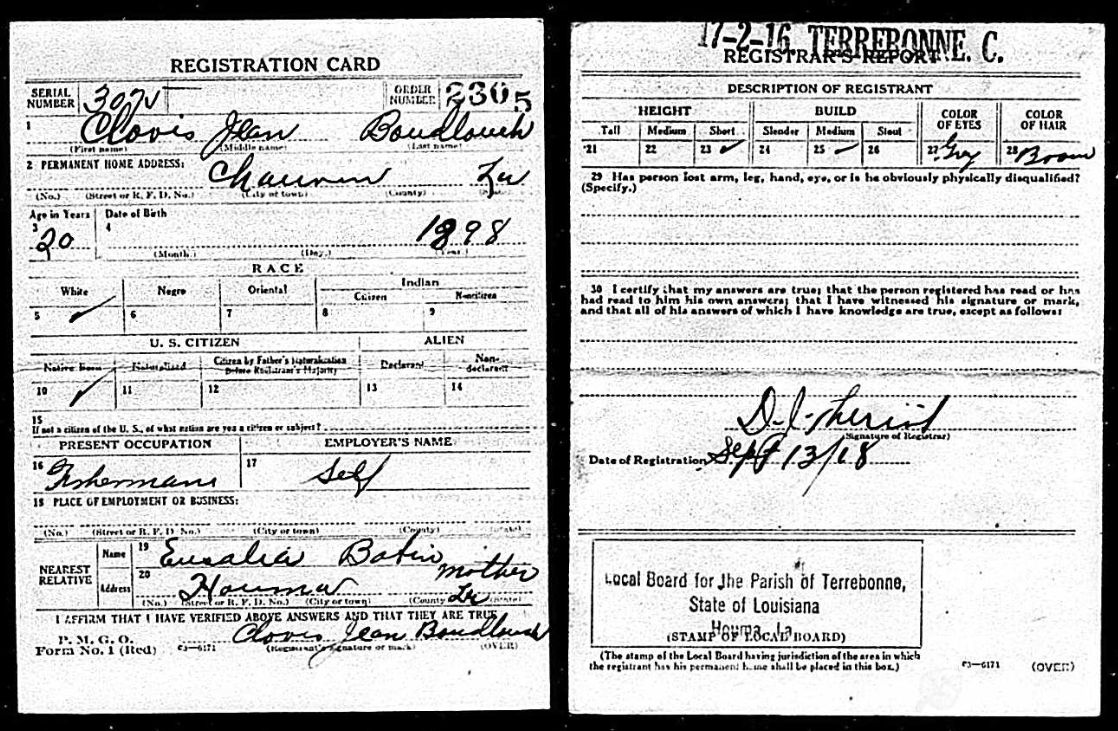 REGISTRATION CARD
SERIAL NUMBER
ORDER NUMBER 2305
1 Clovis Jean Boudlouch
(First name) (Middle name) (Last name)
2 PERMANENT HOME ADDRESS:
Chauvin La
(No.) (Street or R. F. D. No.) (City or town) (County) (State)
Age in Years Date of Birth
3 20 4 1898
(Month.) (Day.) (Year.)
RACE
White Negro Oriental Indian
Citizen Noncitizen
5 ✓ 6 7 8 9
U. S. CITIZEN ALIEN
Native Born Naturalized Citizen by Father's Naturalization Before Registrant's Majority Declarant Non-declarant
10 ✓ 11 12 13 14
15
If not a citizen of the U. S., of what nation are you a citizen or subject?
PRESENT OCCUPATION EMPLOYER'S NAME
16 Fishermans 17 Self
18 PLACE OF EMPLOYMENT OR BUSINESS:
(No.) (Street or R. F. D. No.) (City or town) (County) (State)
NEAREST RELATIVE
Name 19 Eusalia Babin
mother
Address 20 Houma La
(No.) (Street or R. F. D. No.) (City or town) (County) (State)
I AFFIRM THAT I HAVE VERIFIED ABOVE ANSWERS AND THAT THEY ARE TRUE
P. M. G. O.
Form No. 1 (Red) 03—6171
Clovis Jean Boudlouch
(Registrant's signature or mark) (OVER)
17-2-16 TERREBONNE. C.
REGISTRAR'S REPORT
DESCRIPTION OF REGISTRANT
HEIGHT BUILD COLOR OF EYES COLOR OF HAIR
Tall Medium Short Slender Medium Stout
21 22 23 ✓ 24 25 ✓ 26 27 Grey 28 Brown
29 Has person lost arm, leg, hand, eye, or is he obviously physically disqualified?
(Specify.)
30 I certify that my answers are true; that the person registered has read or has
had read to him his own answers; that I have witnessed his signature or mark,
and that all of his answers of which I have knowledge are true, except as follows:
D. J. Theriot
(Signature of Registrar)
Date of Registration Sept 13/18
Local Board for the Parish of Terrebonne,
State of Louisiana
Houma, La.
(STAMP OF LOCAL BOARD)
(The stamp of the Local Board having jurisdiction of the area in which
the registrant has his permanent home shall be placed in this box.)
03—6171 (OVER)